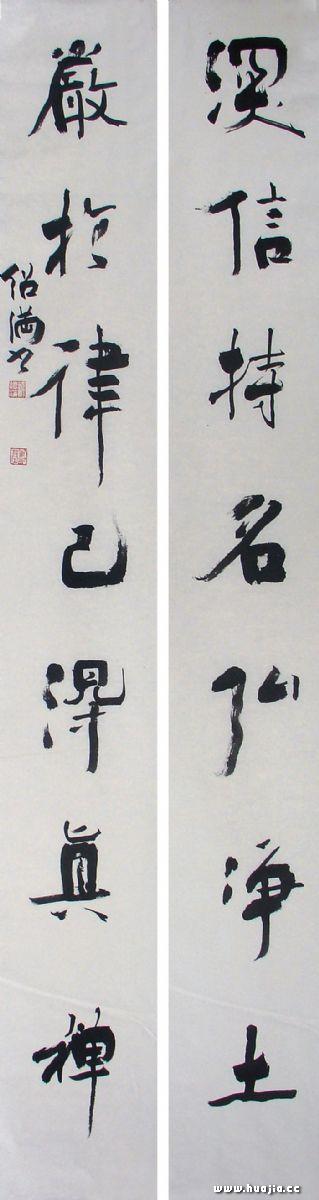 深信持名弘净土
嚴於律己得真禪
绍满书
www.huajia.cc